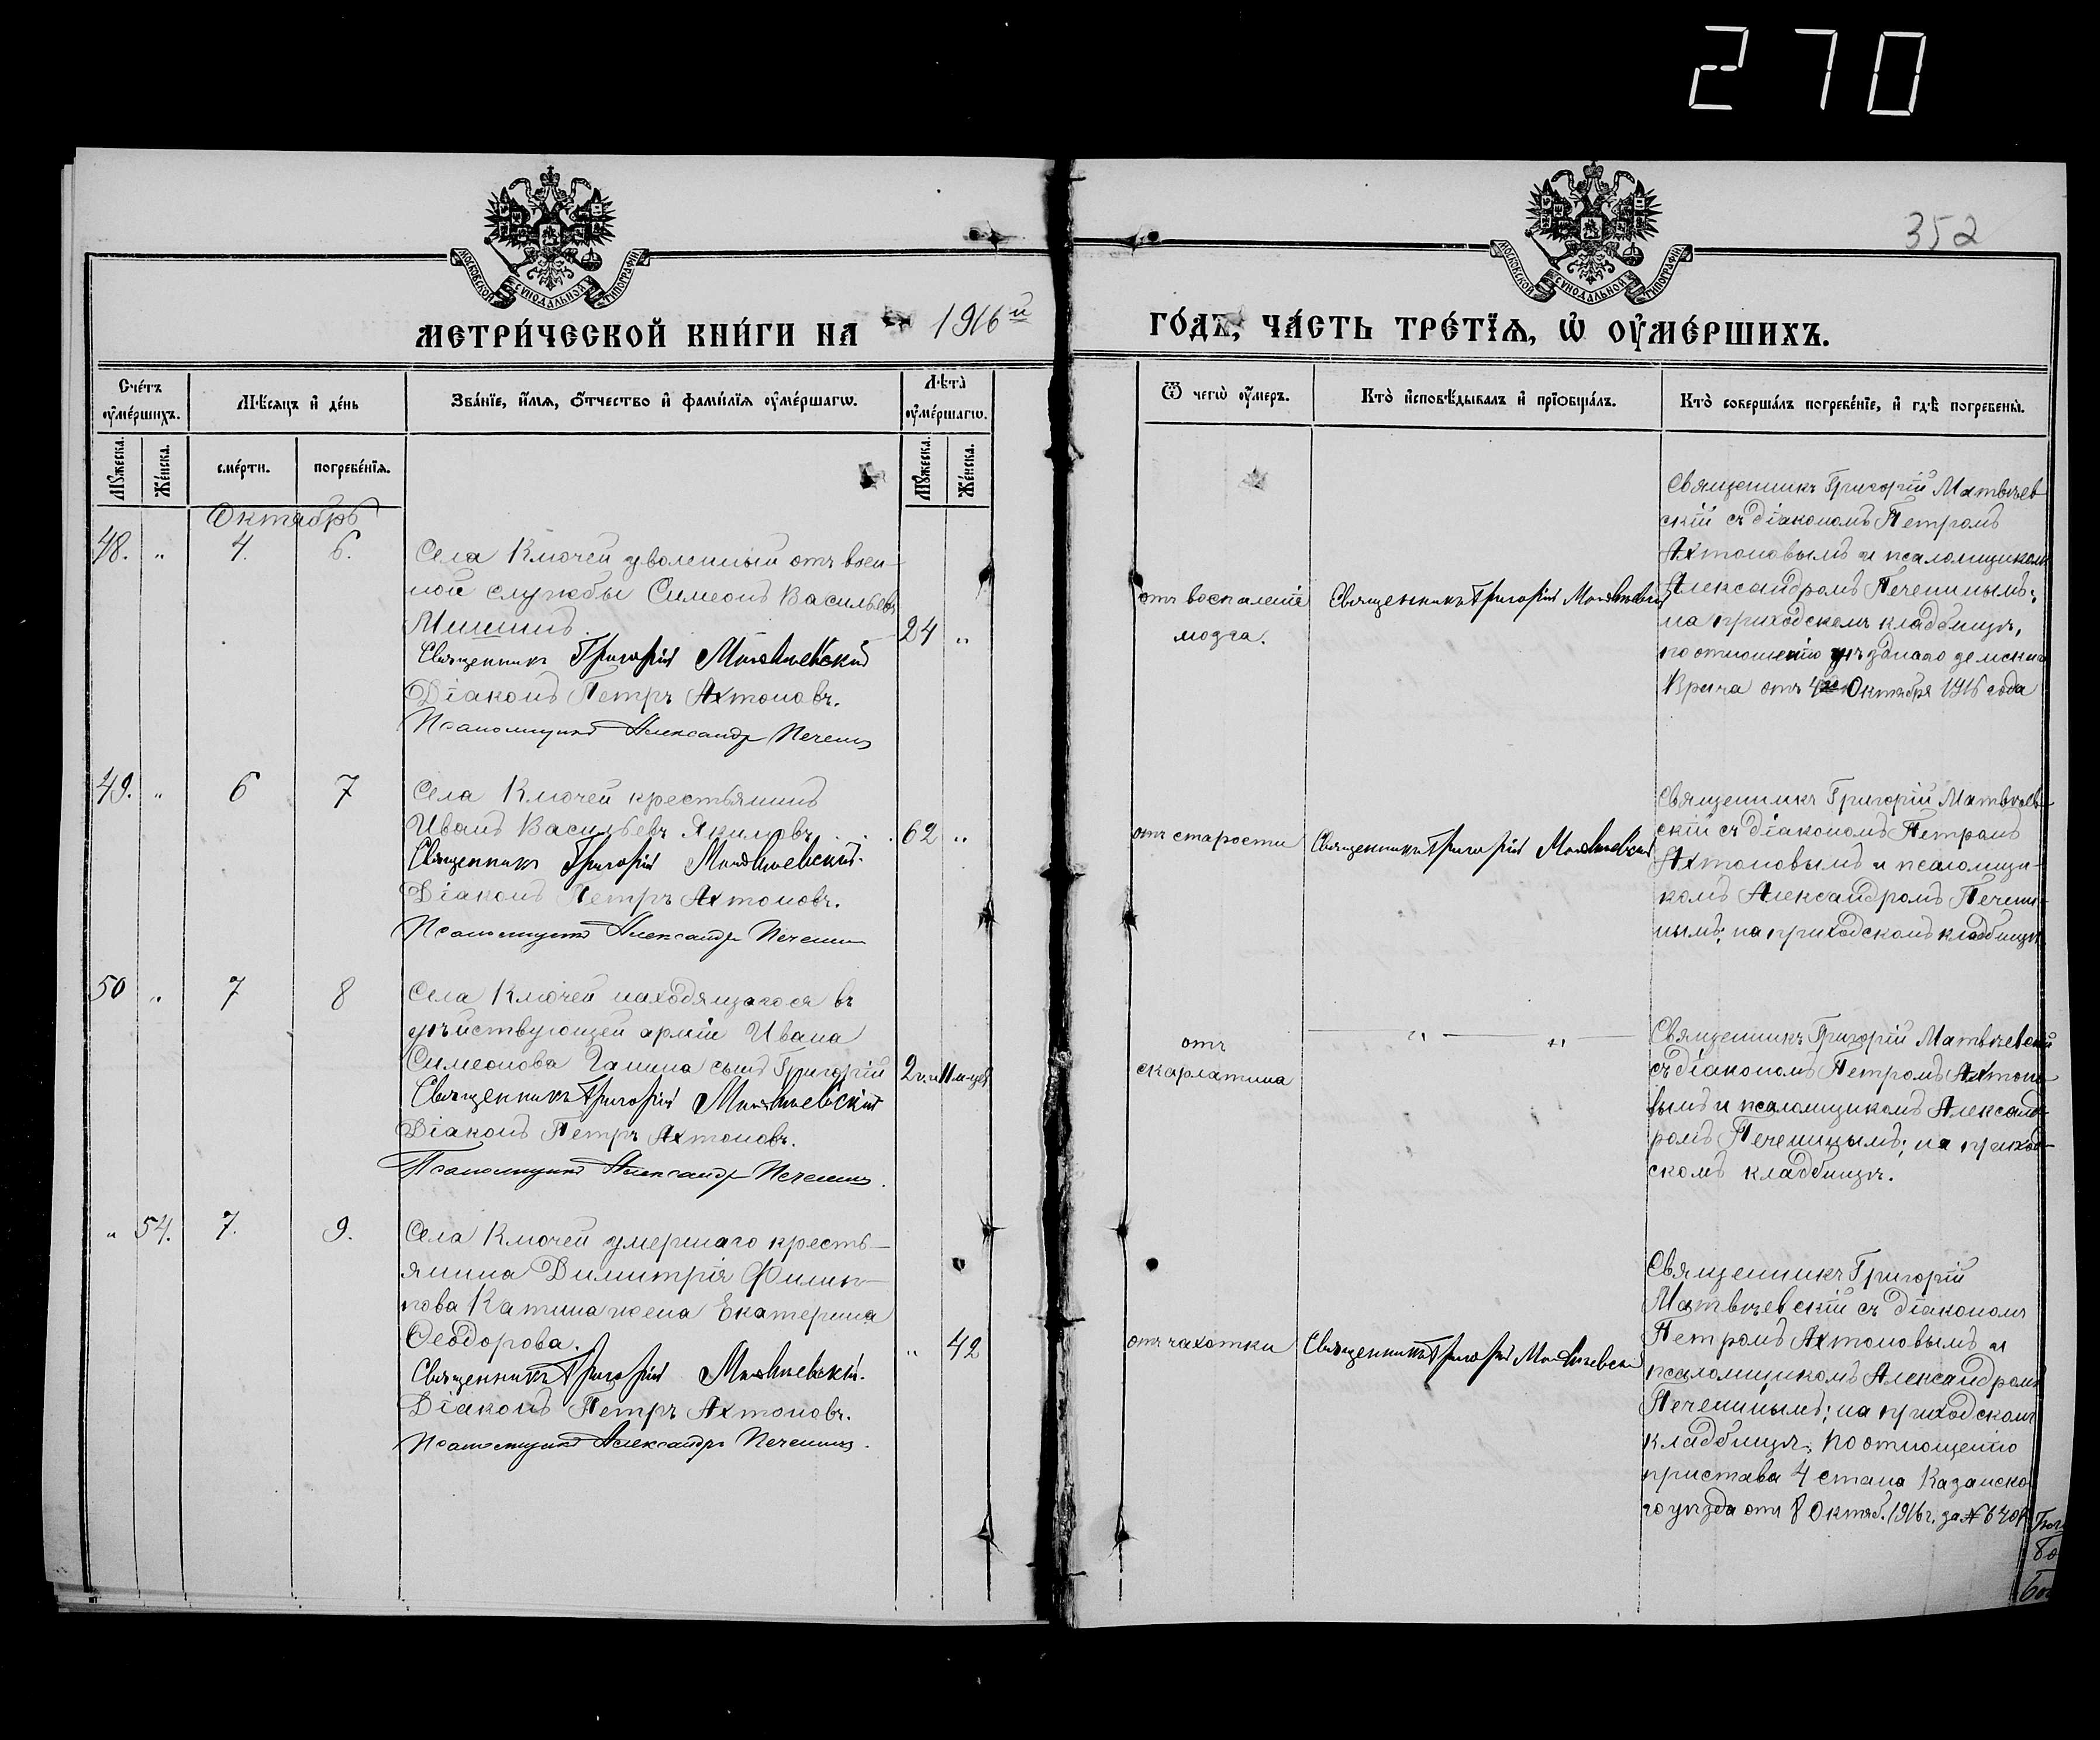 270
352
МОСКОВСКОЙ СѴНОДАЛЬНОЙ ТИПОГРАФІИ
МОСКОВСКОЙ СѴНОДАЛЬНОЙ ТИПОГРАФІИ
МЕТРИ́ЧЕСКОЙ КНИ́ГИ НА 1916й ГО́ДЪ, ЧА́СТЬ ТРЕ́ТЇѦ, Ѡ҆ ОУ҆МЕ́РШИХЪ.
Сче́тъ оу҆ме́ршихъ.
Мѣсѧцъ и҆ де́нь
Зва́нїе, и҆́мѧ, ѻ҆́тчество и҆ фами́лїѧ оу҆ме́ршагѡ.
Лѣта̀ оу҆ме́ршагѡ.
Ѿ чегѡ̀ оу҆́меръ.
Кто̀ и҆сповѣ́дывалъ и҆ прїѡбща́лъ.
Кто̀ соверша́лъ погребе́нїе, и҆ гдѣ̀ погребены̀.
Мꙋ́жеска.
Же́нска.
сме́рти.
погребе́нїѧ.
Мꙋ́жеска.
Же́нска.
Октябрь
48. " 4. 6.
Села Ключей уволенный отъ воен-
ной службы Симеонъ Васильевъ
Мишинъ
24 "
Священникъ Григорій Матвѣевскій
Діаконъ Петръ Ахтоновъ.
Псаломщикъ Александр Печенин
отъ воспаленіе
мозга.
Священникъ Григорій Матвѣевскій
Священникъ Григорій Матвѣев
скій съ діакономъ Петромъ
Ахтоновымъ и псаломщикомъ
Александромъ Печенинымъ;
на приходскомъ кладбищѣ,
по отношенію уѣзднаго земскаго
Врача отъ 4го Октября 1916 года
49. " 6 7
Села Ключей крестьянинъ
Иванъ Васильевъ Якимовъ
62 "
Священникъ Григорій Матвѣевскій.
Діаконъ Петръ Ахтоновъ.
Псаломщикъ Александръ Печенин
отъ старости
Священникъ Григорій Матвѣевскій
Священникъ Григорій Матвѣев-
скій съ діакономъ Петромъ
Ахтоновымъ и псаломщи-
комъ Александромъ Печени-
нымъ; на приходскомъ кладбищѣ
50 " 7 8
Села Ключей находящагося въ
дѣйствующей арміи Ивана
Симеонова Ганина сынъ Григорій
2 г. и 11 м-цев
Священникъ Григорій Матвѣевскій
Діаконъ Петръ Ахтоновъ.
Псаломщикъ Александр Печенинъ.
отъ
скарлатина
" "
Священникъ Григорій Матвѣевскій
съ діакономъ Петромъ Ахтоно-
вымъ и псаломщикомъ Александ-
ромъ Печенинымъ; на приход-
скомъ кладбищѣ.
" 54. 7. 9.
Села Ключей умершаго кресть-
янина Димитрія Филип-
пова Катина жена Екатерина
Ѳеодорова.
" 42
Священникъ Григорій Матвѣевскій.
Діаконъ Петръ Ахтоновъ.
Псаломщикъ Александръ Печенинъ.
отъ чахотки
Священникъ Григорій Матвѣевск
Священникъ Григорій
Матвѣевскій съ діакономъ
Петромъ Ахтоновымъ и
псаломщикомъ Александромъ
Печенинымъ; на приходскомъ
кладбищѣ. По отношенію
пристава 4 стана Казанска-
го уѣзда отъ 8 Октяб. 1916 г. за №